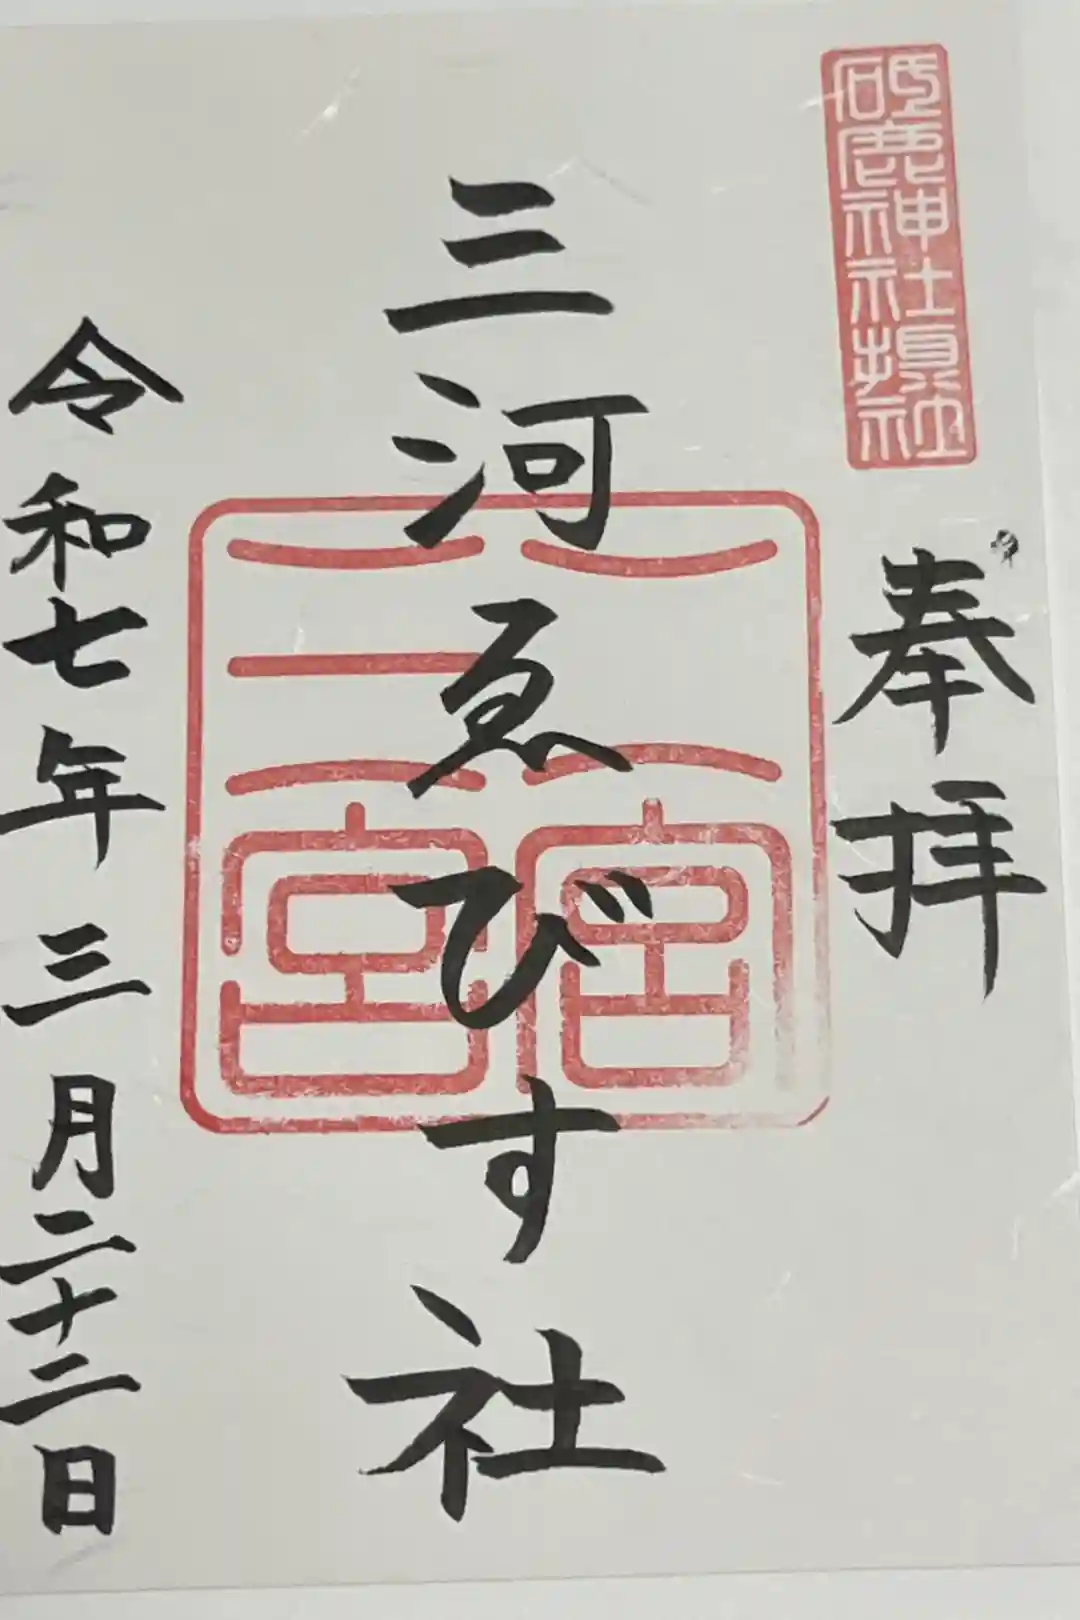 砥鹿神社摂社
奉拝
三河ゑびす社
二宮
三宮
令和七年三月二十二日